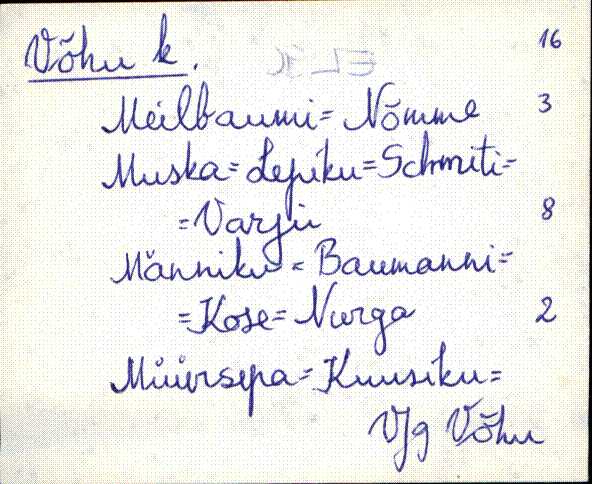 Võhu k. 16
Meilbaumi = Nõmme 3
Muska = Lepiku = Schmiti =
= Varju 8
Männiku = Baumanni =
= Kose = Nurga 2
Müürsepa = Kuusiku =
Vjg Võhu